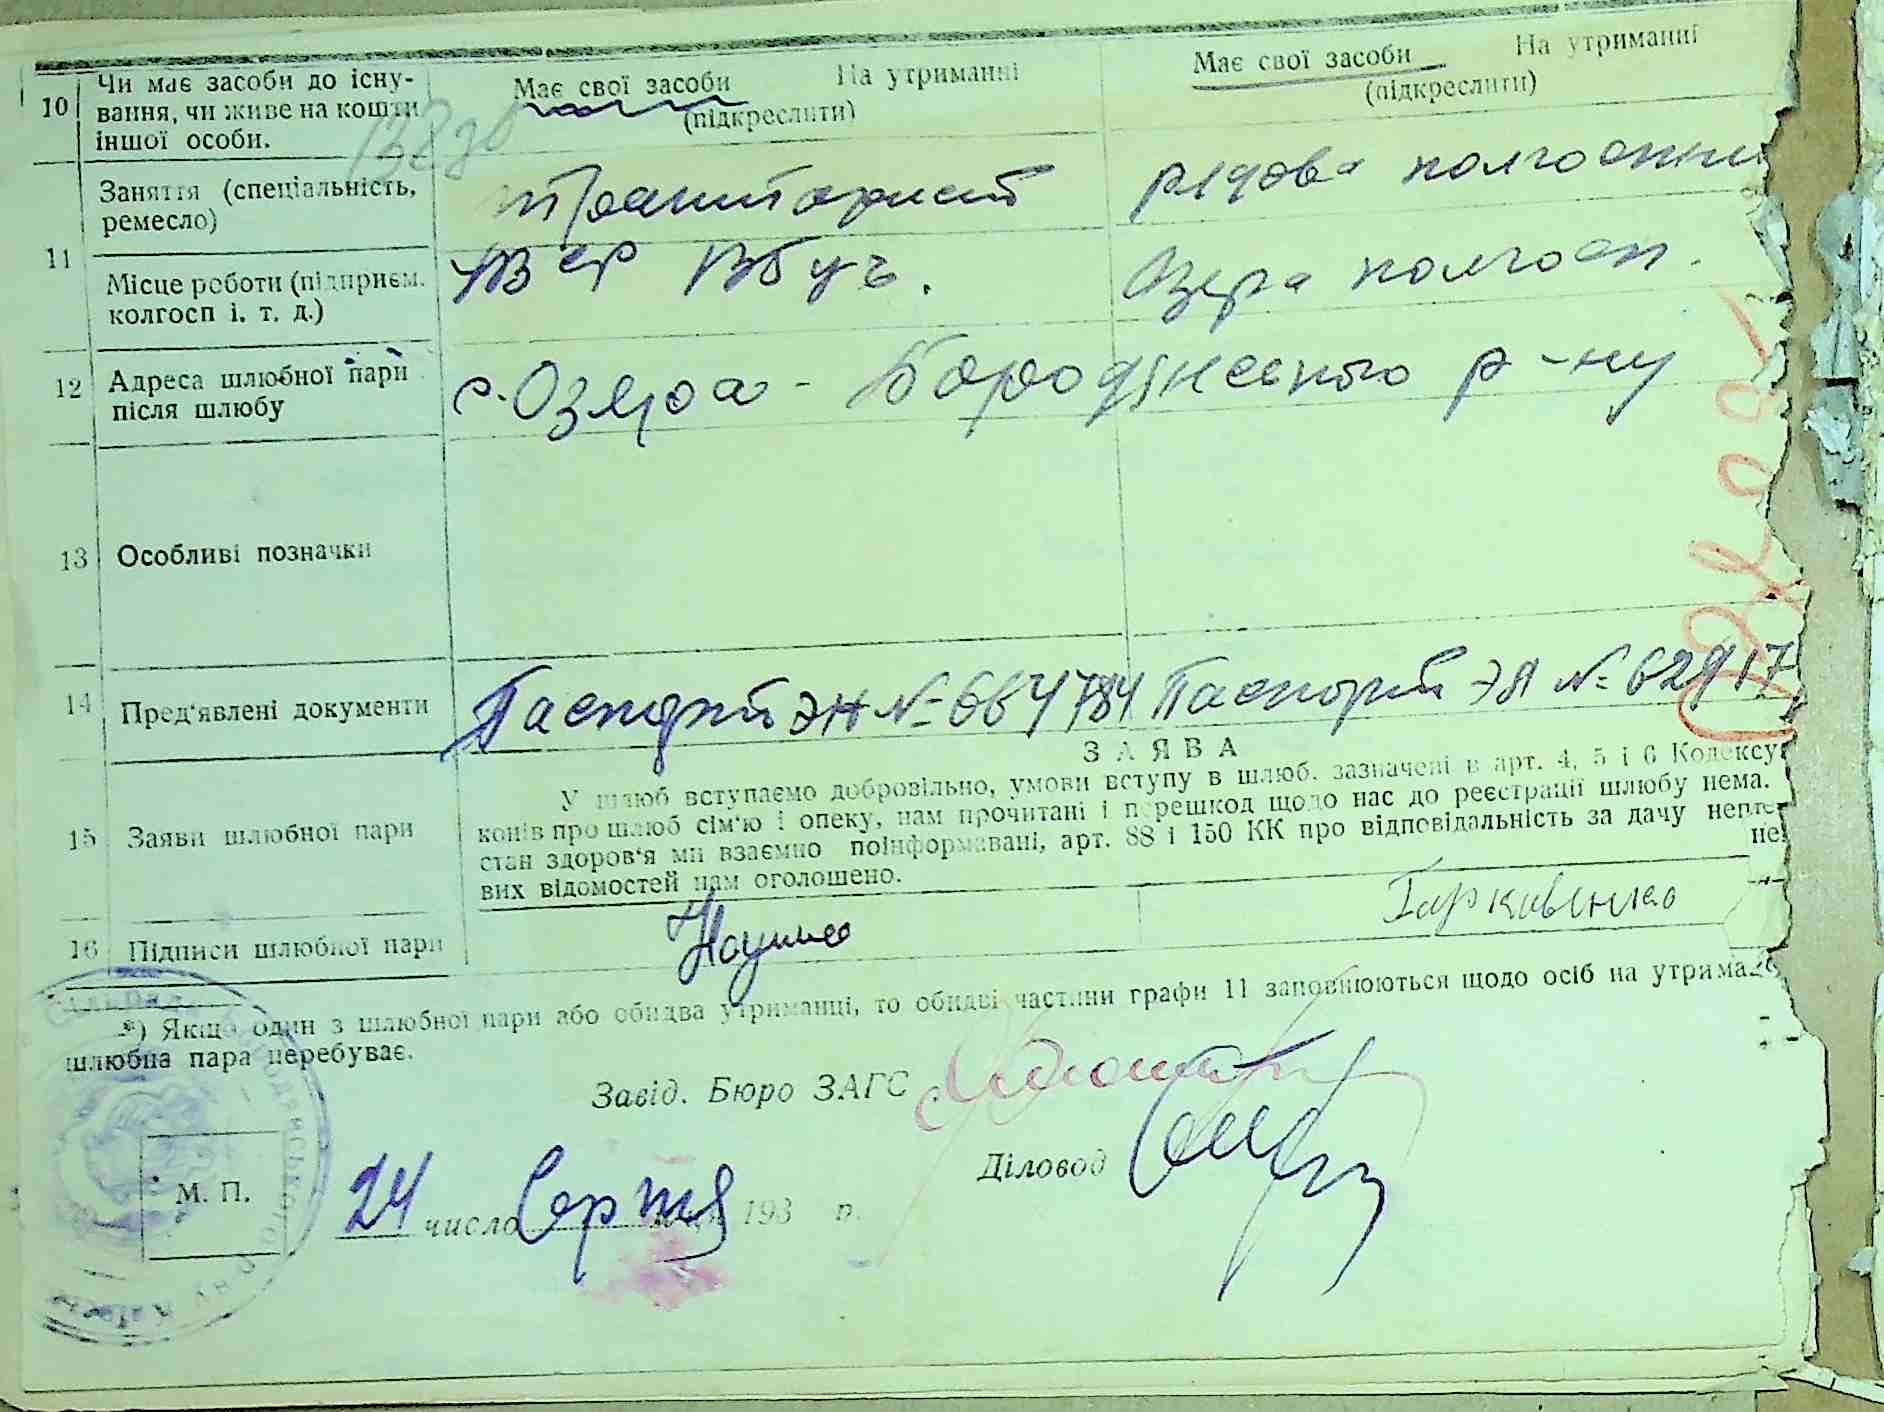 10 Чи має засоби до існу-
вання, чи живе на кошти
іншої особи.
Має свої засоби На утриманні
(підкреслити)
Має свої засоби На утриманні
(підкреслити)
11 Заняття (спеціальність,
ремесло)
тракторист
рядова колгоспни
Місце роботи (підприєм.
колгосп і. т. д.)
Озера колгосп.
12 Адреса шлюбної пари
після шлюбу
с. Озера - Бородянського р-ну
13 Особливі позначки
14 Пред'явлені документи
Паспорт ЭН № 664784 Паспорт ЭЯ № 62917
ЗАЯВА
15 Заяви шлюбної пари
У шлюб вступаємо добровільно, умови вступу в шлюб. зазначені в арт. 4, 5 і 6 Кодексу
конів про шлюб сім'ю і опеку, нам прочитані і перешкод щодо нас до реєстрації шлюбу нема.
стан здоров'я ми взаємно поінформавані, арт. 88 і 150 КК про відповідальність за дачу
не
вих відомостей нам оголошено.
16 Підписи шлюбної пари
Гарковенко
*) Якщо один з шлюбної пари або обидва утриманці, то обидві частини графи 11 заповнюються щодо осіб на
шлюбна пара перебуває.
Завід. Бюро ЗАГС
Діловод
М. П.
24 число Серпня 193 р.